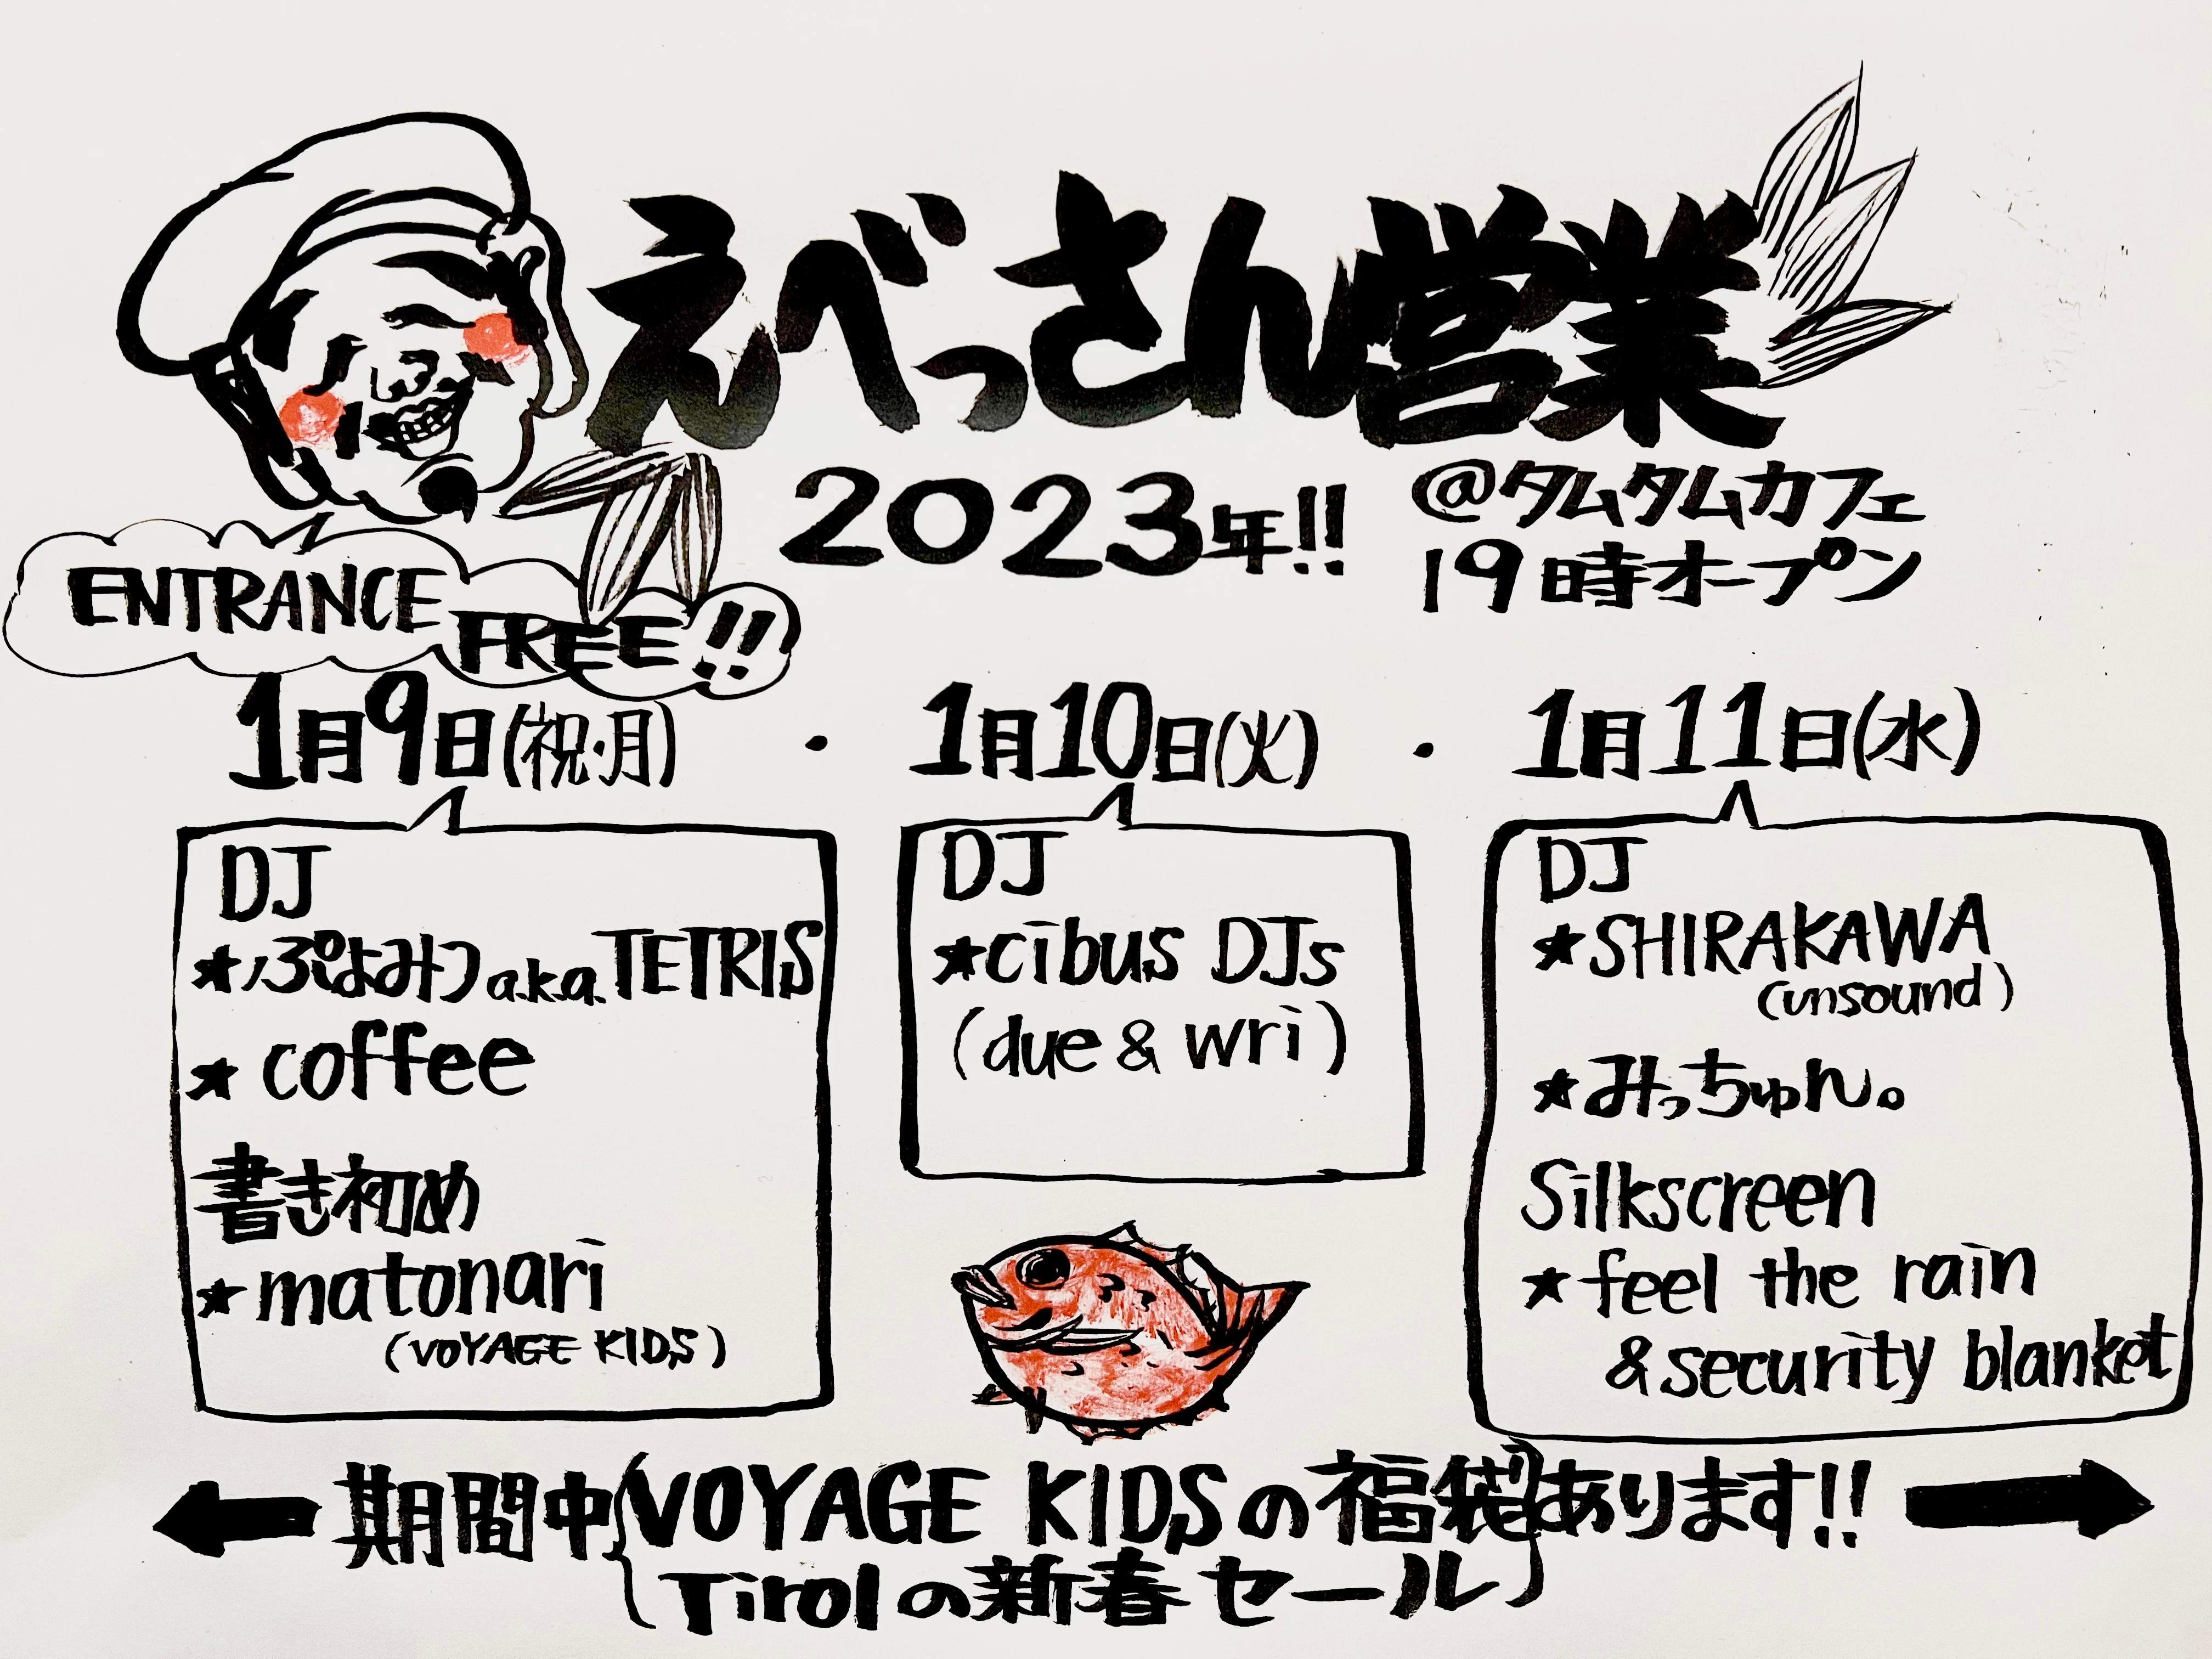 えべっさん営業
2023年!!
@タムタムカフェ
19時オープン
ENTRANCE
FREE!!
1月9日(祝・月)
・
1月10日(火)
・
1月11日(水)
DJ
★ぷよみつ a.k.a. TETRIS
★ coffee
書き初め
★matonari
(VOYAGE KIDS)
DJ
★cibus DJs
(due & wri)
DJ
★SHIRAKAWA
(unsound)
★みっちゅん。
Silkscreen
★feel the rain
&security blanket
期間中{VOYAGE KIDSの福袋}あります!!
Tirolの新春セール